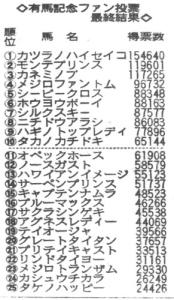 ◇有馬記念ファン投票
最終結果◇
順位 馬名 得票数
①カツラノハイセイコ 154640
②モンテプリンス 119601
③カネミノブ 117265
④メジロファントム 96732
⑤シービークロス 88348
⑥ホウヨウボーイ 88163
⑦シルクスキー 87577
⑧プリテイキャスト
⑨ハギノトップレディ 77896
⑩タカノカチドキ 65144
⑪オペックホース 61908
⑫ノースガスト 58579
⑬ハワイアンイメージ 55123
⑭サーペンプリンス 51737
⑮キタノリキオー 48523
⑯ブルーマックス 46266
⑰サクラシンゲキ 45538
⑱アグネステスコ 44069
⑲テイオージャ 39566
⑳グレートタイタン 37657
㉑ 33513
㉒リンドタイヨー 31161
㉓メジロトランザム 29330
㉔カシュウチカラ 26249
㉕タケノハッピー 24426